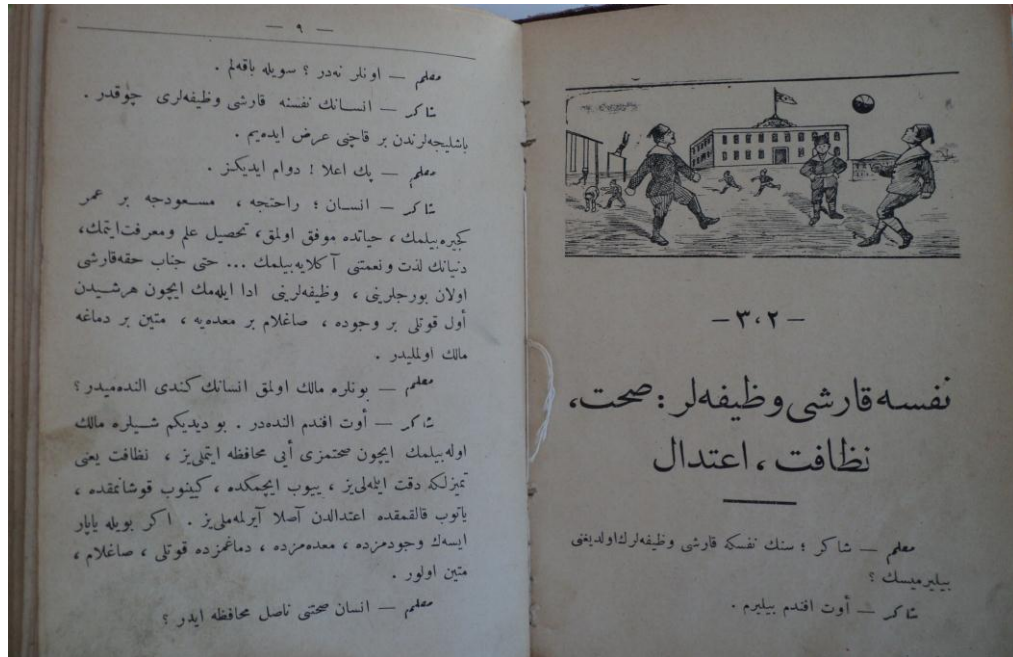 — ٣،٢ —
نفسه قارشى وظيفه‌لر : صحت،
نظافت ، اعتدال
معلم — شاكر ؛ سنك نفسكه قارشى وظيفه‌لرك اولديغنى
بيليرميسك ؟
شاكر — أوت افندم بيليرم .
— ٩ —
معلم — اونلر نه‌در ؟ سويله باقه‌لم .
شاكر — انسانك نفسنه قارشى وظيفه‌لرى چوقدر .
باشليجه‌لرندن بر قاچنى عرض ايده‌يم .
معلم — پك اعلا ! دوام ايديكز .
شاكر — انسان ؛ راحتجه ، مسعودجه بر عمر
كچيره‌بيلمك ، حياتده موفق اولمق ، تحصيل علم ومعرفت‌ايتمك،
دنيانك لذت ونعمتنى آكلايه‌بيلمك ... حتى جناب حقه‌قارشى
اولان بورجلرينى ، وظيفه‌لرينى ادا ايله‌مك ايچون هرشيدن
أول قوتلى بر وجوده ، صاغلام بر معده‌يه ، متين بر دماغه
مالك اولمليدر .
معلم — بونلره مالك اولمق انسانك كندى النده‌ميدر ؟
شاكر — أوت افندم النده‌در . بو ديديكم شيلره مالك
اوله‌بيلمك ايچون صحتمزى أيى محافظه ايتملى‌يز ، نظافت يعنى
تميزلكه دقت ايله‌لى‌يز ، ييوب ايچمكده ، كينوب قوشانمقده ،
ياتوب قالقمقده اعتدالدن آصلا آيرلمه‌ملى‌يز . اكر بويله ياپار
ايسه‌ك وجودمزده ، معده‌مزده ، دماغمزده قوتلى ، صاغلام ،
متين اولور .
معلم — انسان صحتنى ناصل محافظه ايدر ؟